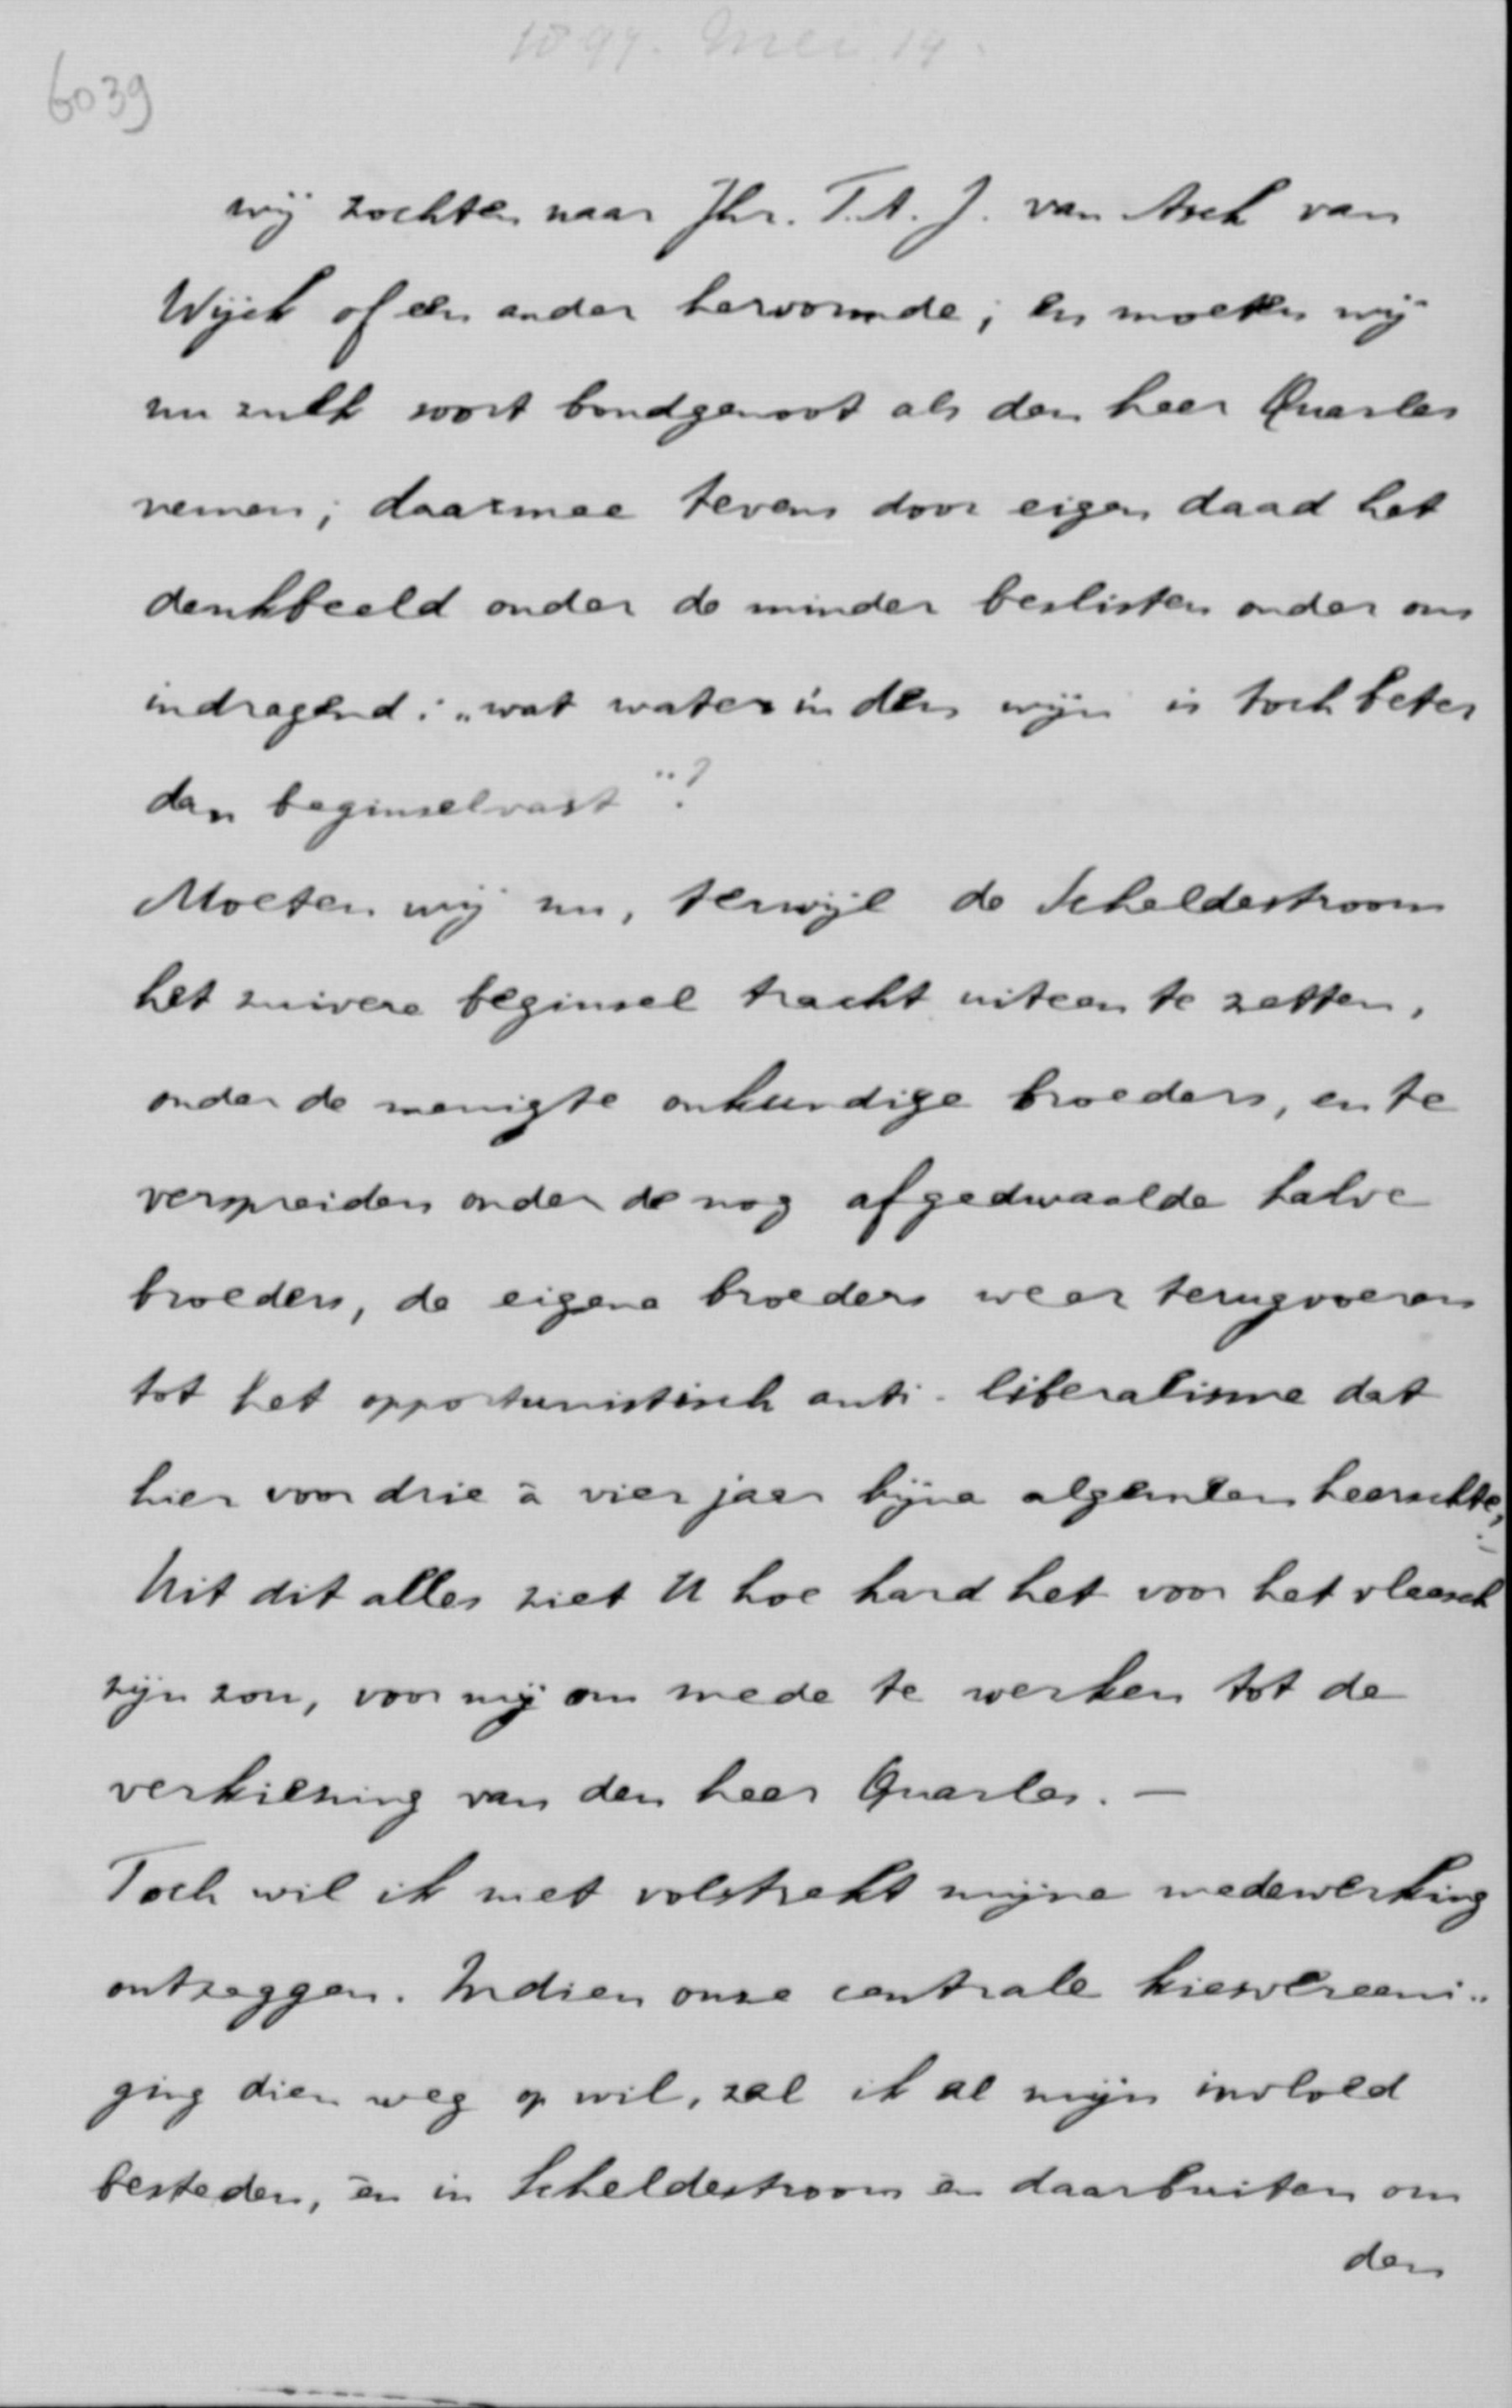 1897. Mei 14.
6039
wij zochten naar Jhr. T. A. J. van Asch van
Wijck of een ander hervormde; en moeten wij
nu zulk soort bondgenoot als den heer Quarles
nemen; daarmee tevens door eigen daad het
denkbeeld onder de minder beslisten onder ons
indragend: „wat water in den wijn is toch beter
dan beginselvast"?
Moeten wij nu, terwijl de Scheldestroom
het zuivere beginsel tracht uiteen te zetten,
onder de menigte onkundige broeders, en te
verspreiden onder de nog afgedwaalde halve
broeders, de eigene broeders weer terugvoeren
tot het opportunistisch anti-liberalisme dat
hier voor drie à vier jaar bijna algemeen heerschte,
Uit dit alles ziet U hoe hard het voor het vleesch
zijn zou, voor mij om mede te werken tot de
verkiezing van den heer Quarles. —
Toch wil ik niet volstrekt mijne medewerking
ontzeggen. Indien onze centrale kiesvereeni„
ging dien weg op wil, zal ik al mijn invloed
besteden, èn in Scheldestroom èn daarbuiten om
den